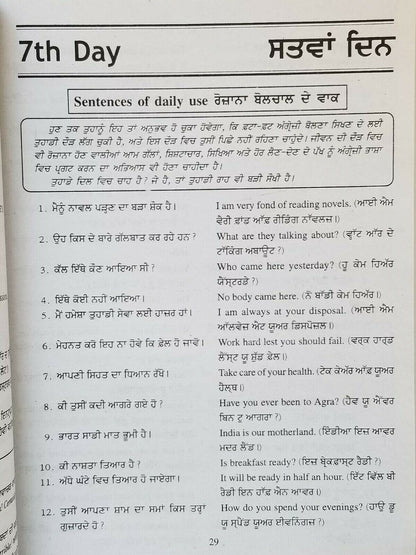 7th Day ਸਤਵਾਂ ਦਿਨ
Sentences of daily use ਰੋਜ਼ਾਨਾ ਬੋਲਚਾਲ ਦੇ ਵਾਕ
ਹੁਣ ਤਕ ਤੁਹਾਨੂੰ ਇਹ ਤਾਂ ਅਨੁਭਵ ਹੋ ਚੁਕਾ ਹੋਵੇਗਾ, ਕਿ ਫਟਾ-ਫਟ ਅੰਗ੍ਰੇਜ਼ੀ ਬੋਲਣਾ ਸਿਖਣ ਦੇ ਲਈ
ਤੁਹਾਡੀ ਦੌੜ ਲੱਗ ਚੁਕੀ ਹੈ, ਅਤੇ ਇਸ ਦੌੜ ਵਿਚ ਤੁਸੀਂ ਪਿਛੇ ਨਹੀਂ ਰਹਿਣਾ ਚਾਹੁੰਦੇ। ਜੀਵਨ ਦੀ ਦੌੜ ਵਿਚ
ਵੀ ਰੋਜ਼ਾਨਾ ਹੋਣ ਵਾਲੀਆਂ ਆਮ ਗੱਲਾਂ, ਸ਼ਿਸ਼ਟਾਚਾਰ, ਸਿਖਿਆ ਅਤੇ ਹੋਰ ਲੈਣ-ਦੇਣ ਦੇ ਪੱਖ ਨੂੰ ਅੰਗ੍ਰੇਜ਼ੀ ਭਾਸ਼ਾ
ਵਿਚ ਪ੍ਰਗਟ ਕਰਨ ਦਾ ਅਭਿਆਸ ਵੀ ਹੋਣਾ ਚਾਹੀਦਾ ਹੈ।
ਤੁਹਾਡੇ ਦਿਲ ਵਿਚ ਚਾਹ ਹੈ? ਜੇ ਹੈ, ਤਾਂ ਤੁਹਾਡੀ ਰਾਹ ਵੀ ਬੜੀ ਸੌਖੀ ਹੈ।
1. ਮੈਨੂੰ ਨਾਵਲ ਪੜ੍ਹਣ ਦਾ ਬੜਾ ਸ਼ੌਕ ਹੈ। I am very fond of reading novels. (ਆਈ ਐਮ
ਵੈਰੀ ਫ਼ਾਂਡ ਆੱਫ਼ ਰੀਡਿੰਗ ਨਾੱਵਲਜ਼।)
2. ਉਹ ਕਿਸ ਦੇ ਬਾਰੇ ਗੱਲਬਾਤ ਕਰ ਰਹੇ ਹਨ? What are they talking about? (ਵ੍ਹਾੱਟ ਆੱਰ ਦੇ
ਟਾੱਕਿੰਗ ਅਬਾਉਟ?)
3. ਕੱਲ ਇੱਥੇ ਕੌਣ ਆਇਆ ਸੀ? Who came here yesterday? (ਹੂ ਕੇਮ ਹਿਅੱਰ
ਯੈੱਸਟਰਡੇ?)
4. ਇੱਥੇ ਕੋਈ ਨਹੀਂ ਆਇਆ। No body came here. (ਨੋ ਬਾੱਡੀ ਕੇਮ ਹਿਅੱਰ।)
5. ਮੈਂ ਹਮੇਸ਼ਾ ਤੁਹਾਡੀ ਸੇਵਾ ਲਈ ਹਾਜ਼ਰ ਹਾਂ। I am always at your disposal. (ਆਈ ਐਮ
ਆੱਲਵੇਜ਼ ਐਟ ਯੂਅਰ ਡਿਸਪੋਜ਼ਲ।)
6. ਮੇਹਨਤ ਕਰੋ ਇਹ ਨਾ ਹੋਵੇ ਕਿ ਫੇਲ ਹੋ ਜਾਵੋਂ। Work hard lest you should fail. (ਵਰ੍ਕ ਹਾਰ੍ਡ
ਲੈੱਸਟ ਯੂ ਸ਼ੁੱਡ ਫ਼ੇਲ।)
7. ਆਪਣੀ ਸਿਹਤ ਦਾ ਧਿਆਨ ਰੱਖੋ। Take care of your health. (ਟੇਕ ਕੇਅੱਰ ਆੱਫ਼ ਯੂਅਰ
ਹੈਲ੍ਥ।)
8. ਕੀ ਤੁਸੀਂ ਕਦੀ ਆਗਰੇ ਗਏ ਹੋ? Have you ever been to Agra? (ਹੈਵ ਯੂ ਐੱਵਰ
ਬਿਨ ਟੂ ਆਗਰਾ?)
9. ਭਾਰਤ ਸਾਡੀ ਮਾਤ ਭੂਮੀ ਹੈ। India is our motherland. (ਇੰਡੀਆ ਇਜ਼ ਆਵਰ
ਮਦਰ ਲੈਂਡ।)
10. ਕੀ ਨਾਸ਼ਤਾ ਤਿਆਰ ਹੈ? Is breakfast ready? (ਇਜ਼ ਬ੍ਰੇਕਫ਼ਾਸ੍ਟ ਰੈਡੀ?)
11. ਅੱਧੇ ਘੰਟੇ ਵਿਚ ਤਿਆਰ ਹੋ ਜਾਏਗਾ। It will be ready in half an hour. (ਇੱਟ ਵਿੱਲ ਬੀ
ਰੈਡੀ ਇਨ ਹਾੱਫ਼ ਐਨ ਆਵਰ।)
12. ਤੁਸੀਂ ਆਪਣਾ ਸ਼ਾਮ ਦਾ ਸਮਾਂ ਕਿਸ ਤਰ੍ਹਾਂ How do you spend your evenings? (ਹਾਉ ਡੂ
ਗੁਜ਼ਾਰਦੇ ਹੋ? ਯੂ ਸਪੈਂਡ ਯੂਅਰ ਈਵਨਿੰਗਜ਼?)
29